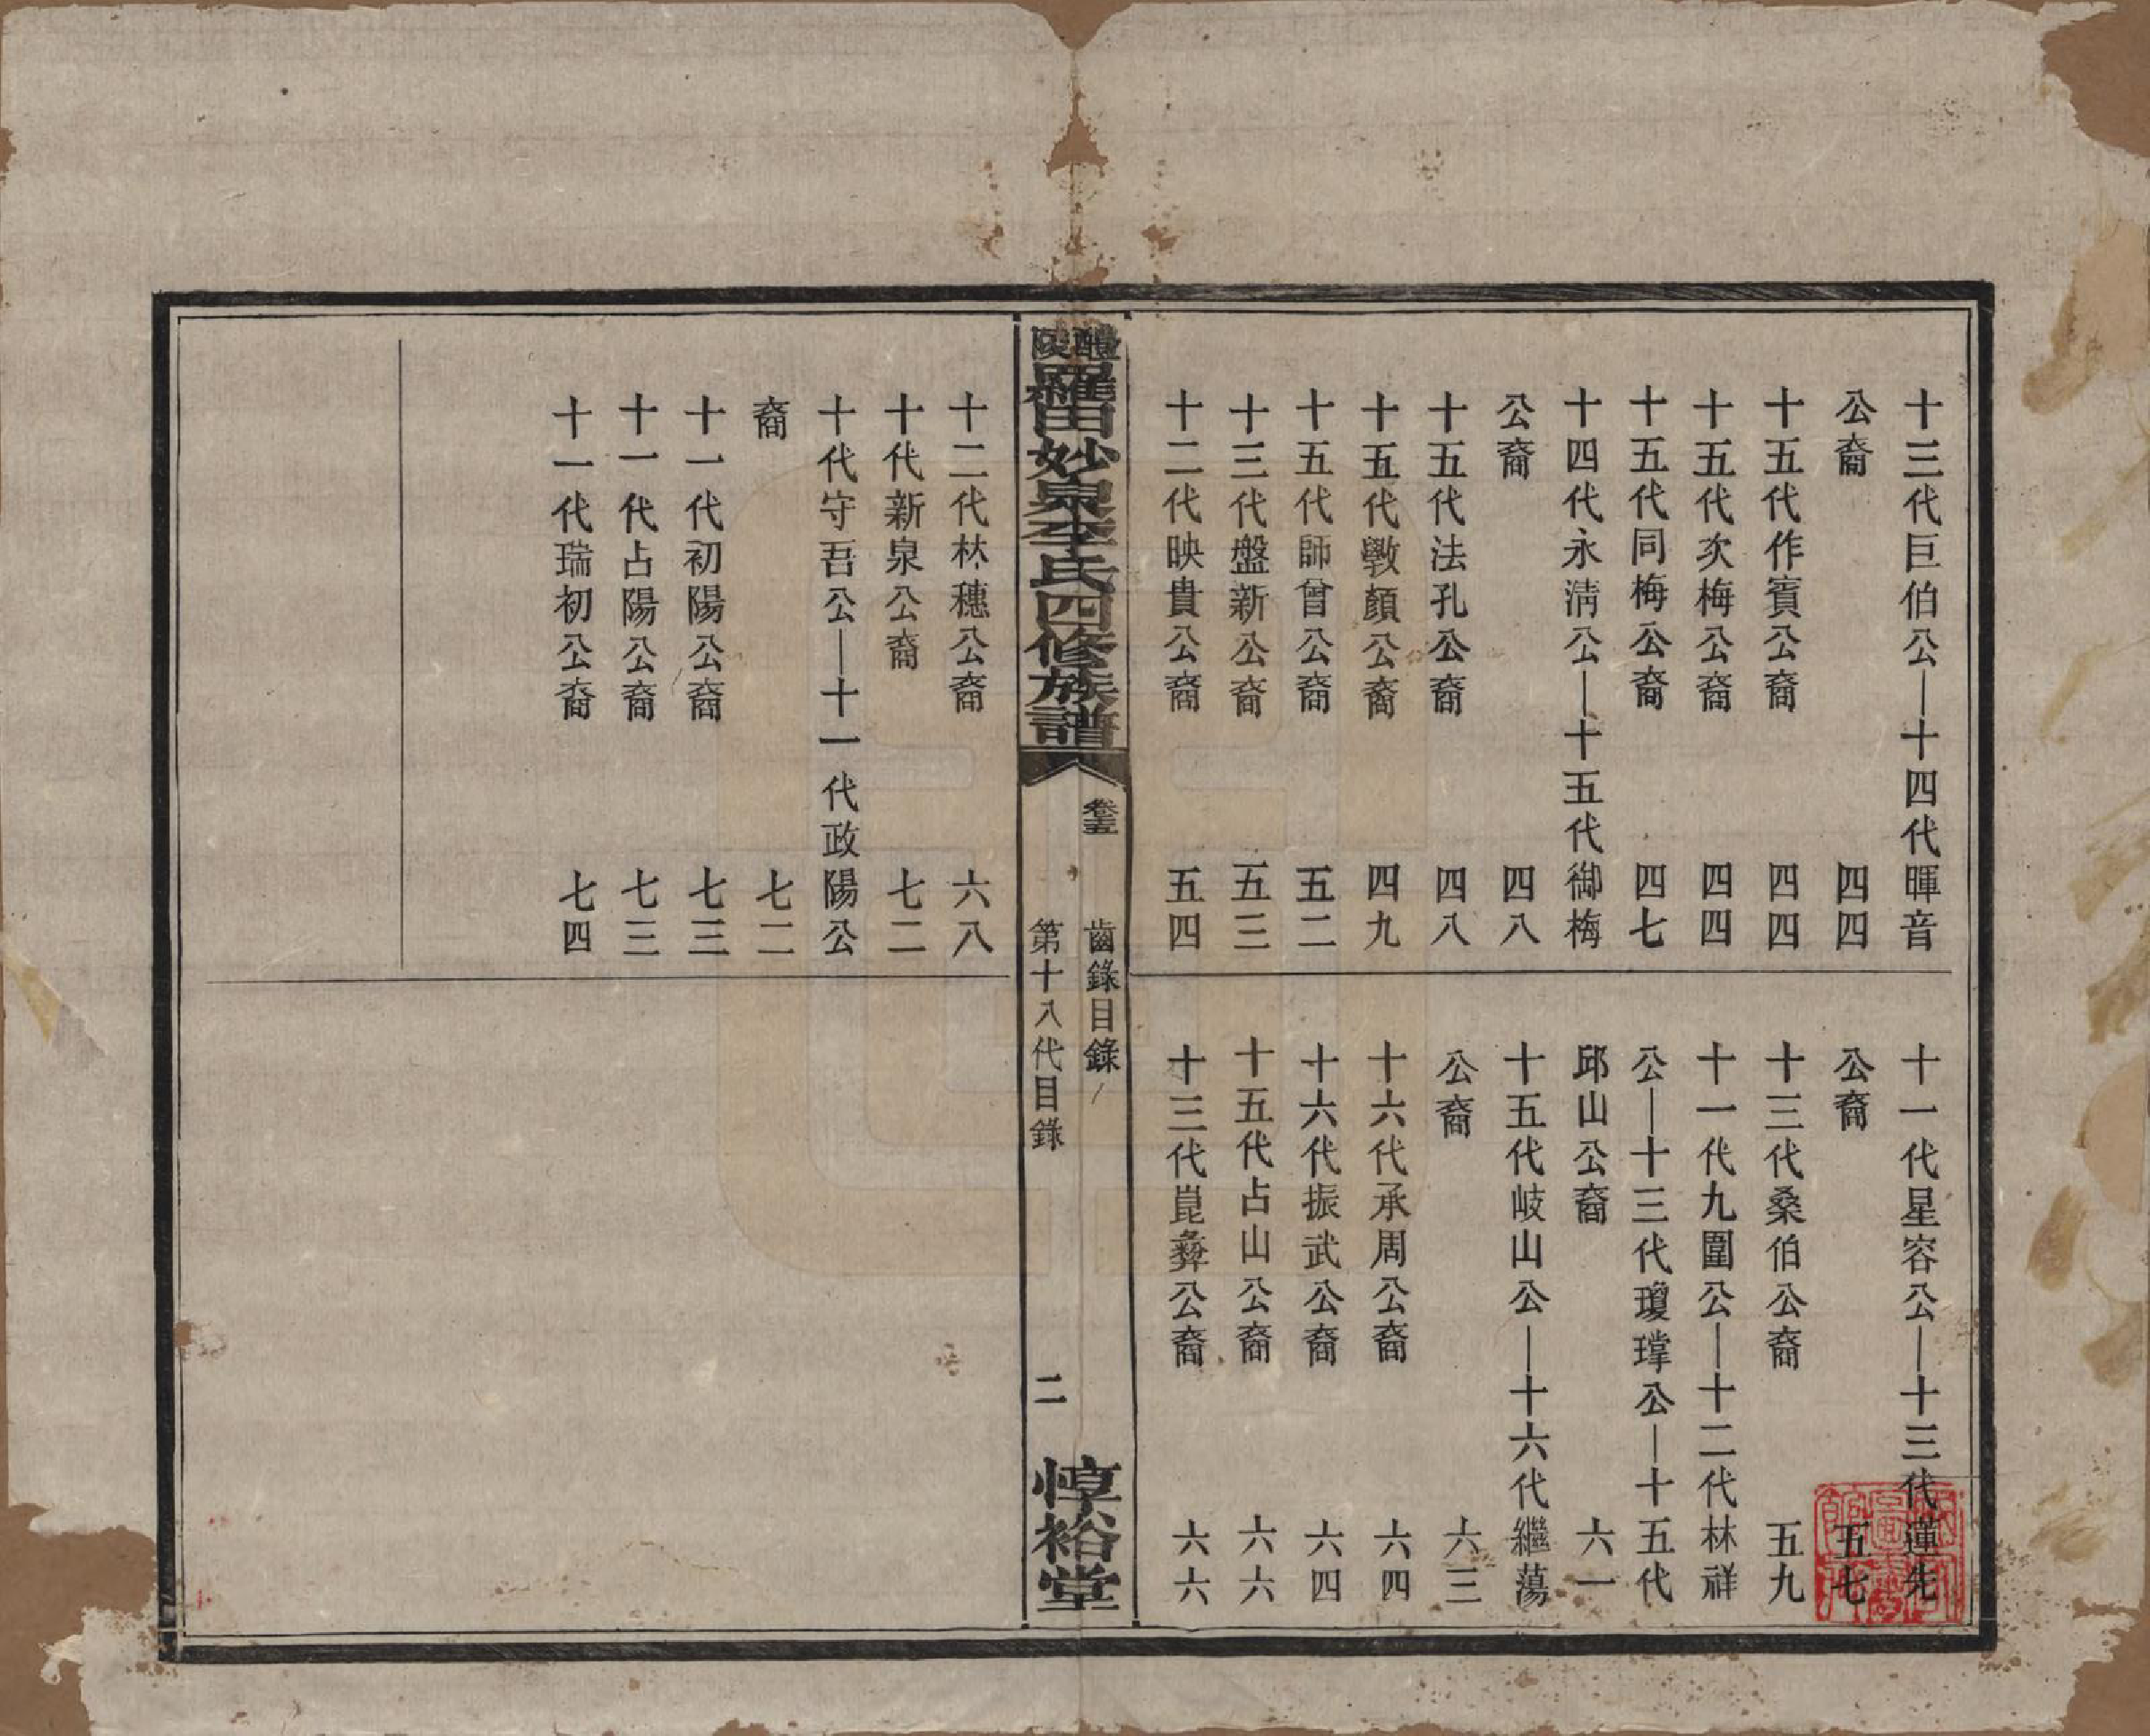 十三代巨伯公—十四代暉音
公裔 四四
十五代作賓公裔 四四
十五代次梅公裔 四四
十五代同梅公裔 四七
十四代永淸公—十五代御梅
公裔 四八
十五代法孔公裔 四八
十五代斆顏公裔 四九
十五代師曾公裔 五二
十三代盤新公裔 五三
十二代映貴公裔 五四
十一代星容公—十三代蓮先
公裔 五七
十三代桑伯公裔 五九
十一代九圍公—十二代林祥
公—十三代瓊㙁公—十五代
邱山公裔 六一
十五代岐山公—十六代繼蕩
公裔 六三
十六代承周公裔 六四
十六代振武公裔 六四
十五代占山公裔 六六
十三代崑彝公裔 六六
醴陵羅田妙泉李氏四修族譜
卷五
齒錄目錄
第十八代目錄
二
惇裕堂
十二代林穗公裔 六八
十代新泉公裔 七二
十代守吾公—十一代政陽公
裔 七二
十一代初陽公裔 七三
十一代占陽公裔 七三
十一代瑞初公裔 七四